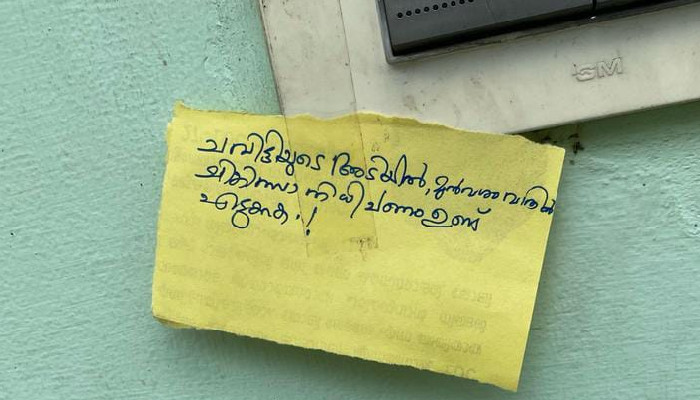 GM
ചവിട്ടിയുടെ അടിയിൽ, മുൻവശം വാതിൽ
ചികിത്സാ നിധി പണം ഉണ്ട്
എടുക്കുക..!